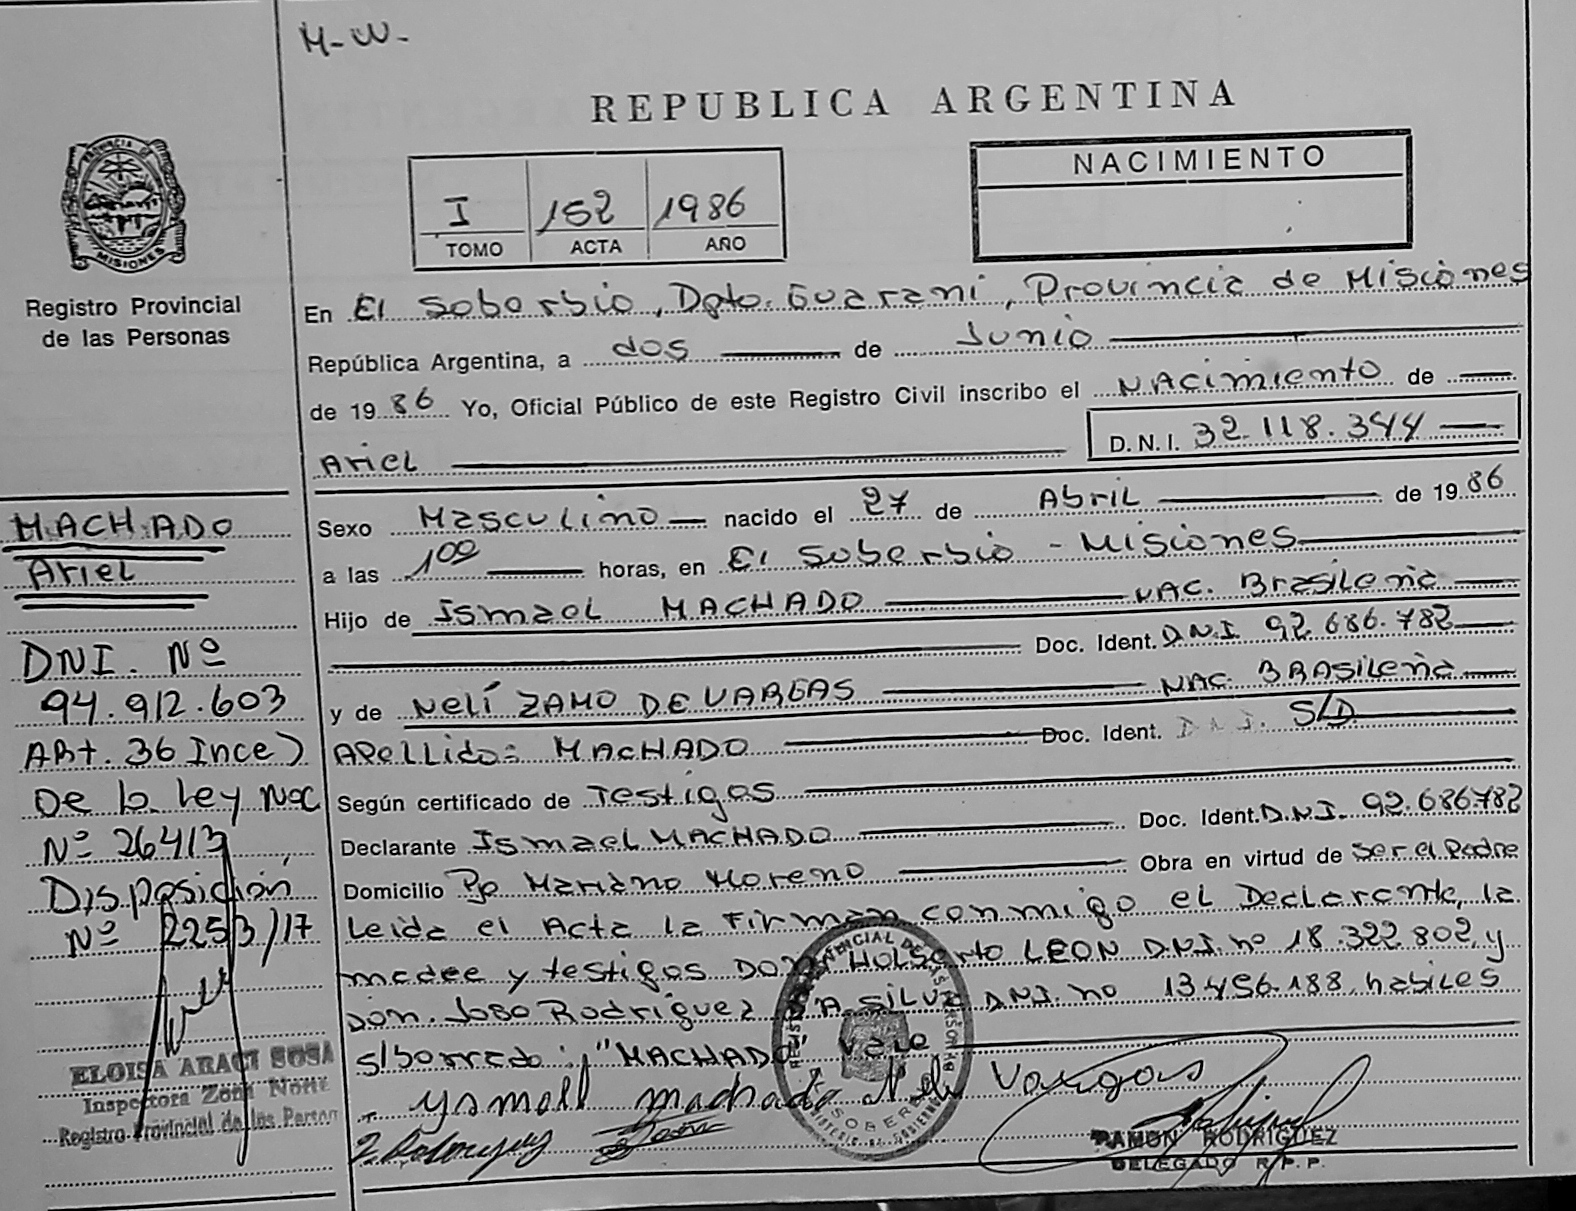 M-W-
REPUBLICA ARGENTINA
PROVINCIA DE
MISIONES
Registro Provincial
de las Personas
I 152 1986
TOMO ACTA AÑO
NACIMIENTO
En El Soberbio, Dpto. Guarani, Provincia de Misiones
República Argentina, a dos de Junio
de 19 86 Yo, Oficial Público de este Registro Civil inscribo el Nacimiento de
Ariel
D.N.I. 32.118.344
Sexo Masculino nacido el 27 de Abril de 19 86
a las 1⁰⁰ horas, en El Soberbio - Misiones
Hijo de Ismael MACHADO NAC. Brasileña
Doc. Ident. D.N.I 92.686.782
y de Nelí ZAMO DE VARGAS NAC. BRASileña
Apellido: MACHADO Doc. Ident. D.N.I. S/D
Según certificado de Testigos
Declarante Ismael MACHADO Doc. Ident. D.N.I. 92.686782
Domicilio Pje Mariano Moreno Obra en virtud de ser el Padre
Leida el Acta la Firman conmigo el Declarante, la
madre y testigos DON HOLSARto LEON D.N.I. nº 18.322.802, y
Don. Joso Rodriguez DA SILVA D.N.I. no 13.456.188, habiles
s/borrado: "MACHADO" Vale
ysmall machado Neli Vargas
RAMON RODRIGUEZ
DELEGADO R.P.P.
MACHADO
Ariel
DNI. Nº
94.912.603
ARt. 36 Ince)
De la Ley Nac
Nº 26413
Disposición
Nº 2253/17
ELOISA ARACI SOSA
Inspectora Zona Norte
Registro Provincial de las Person